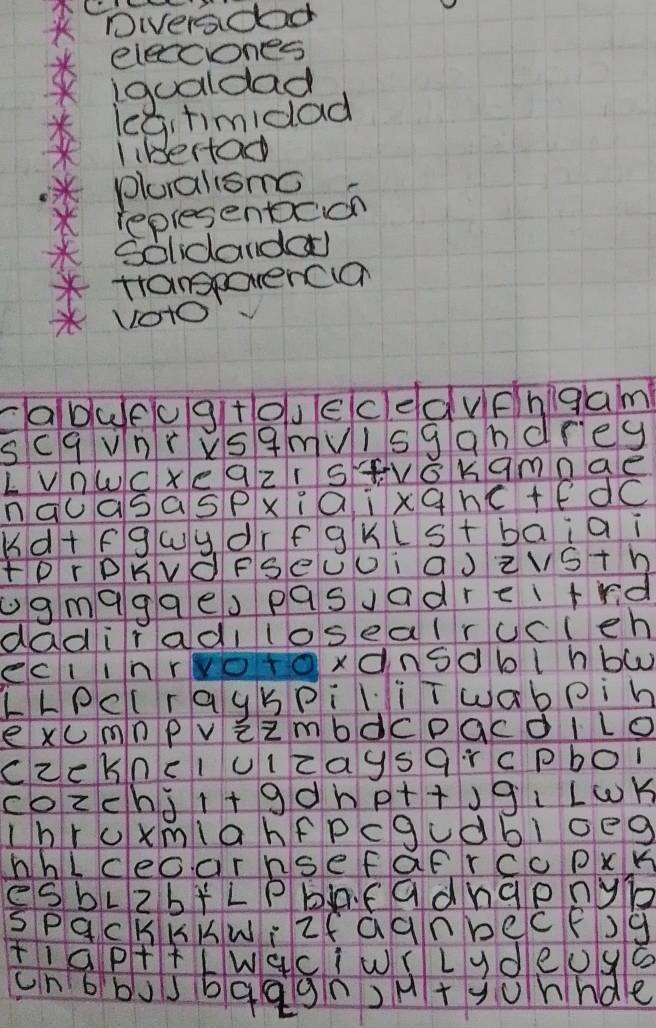 * Diversidad
* elecciones
* igualdad
* legitimidad
* libertad
* pluralismo
* representación
* Solidaridad
* transparencia
* voto ✓
s c q v n r v s q m v i s g a n d r e y
L v n w c x e q z i s t v o k q m n a e
n a u a s a s p x i a i x q n c t f d c
k d t f g w y d r f g k L s t b a i a i
t p r p k v d f s e u u i a j z v s t h
u g m q g q e j p a s j a d r e i t r d
d a d i r a d i l o s e a l r u c l e n
e c i i n r v o t o x d n s d b l h b w
L L p c l r a y k p i l i T w a b p i h
e x c m n p v z z m b d c p a c d i L o
c z c k n c l u i z a y s q r c p b o i
c o z c h j i t g d h p t t j g i L w k
i h r u x m l a h f p c g u d b l o e g
n h L c e o a r n s e f a f r c c p x k
e s b L z b t L p b n f a d n a p n y b
s p a c k k k w i z f a a n b e c f j g
t i a p t t L w q c i w r L y d e u y o